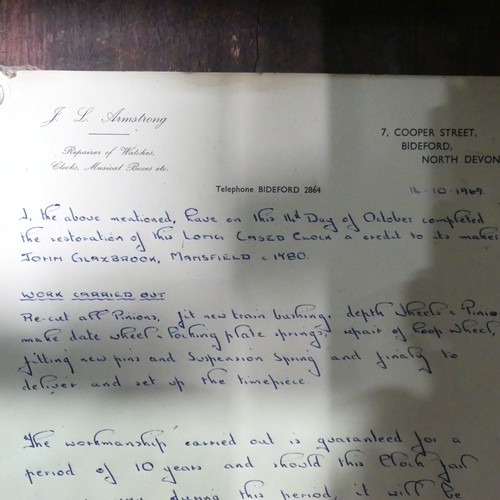 J. L. Armstrong
Repairer of Watches,
Clocks, Musical Boxes etc.
7, COOPER STREET,
BIDEFORD,
NORTH DEVON
Telephone BIDEFORD 2864
14-10-1969.
I, the above mentioned, have on this 14th Day of October completed
the restoration of this LONG CASED CLOCK a credit to its maker
JOHN GLAZBROOK, MANSFIELD c 1780.
WORK CARRIED OUT
Re-cut all Pinions, fit new train bushing, depth wheels & Pinio
make date wheel & locking plate springs, repair of hoop wheel,
fitting new pins and Suspension Spring and finally to
deliver and set up the timepiece.
The workmanship carried out is guaranteed for a
period of 10 years and should this Clock fail
during this period, it will be